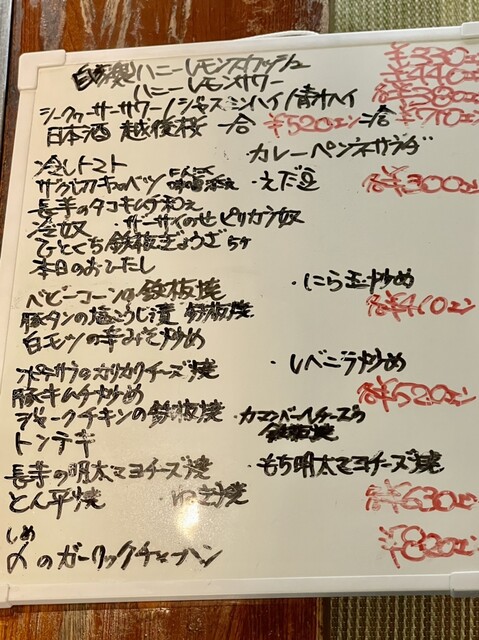 自家製ハニーレモンスカッシュ ¥330エン
ハニーレモンサワー ¥440エン
シークヮーサーサワー/ジャスミンハイ/青汁ハイ 各¥380エン
日本酒 越後桜 一合 ¥520エン 二合 ¥970エン
カレーペンネサラダ
冷しトマト
キャベツ ・えだ豆 各¥300エン
長芋のタコキムチ和え
冷奴 ・ザーサイのせピリカラ奴
ひとくち鉄板ぎょうざ5ヶ
本日のおひたし
ベビーコーンの鉄板焼 ・にら玉炒め
豚タンの塩こうじ漬 鉄板焼 各¥410エン
白モツの辛みそ炒め
ポテサラのカリカリチーズ焼 ・レバニラ炒め
豚キムチ炒め 各¥520エン
ジャークチキンの鉄板焼 ・カマンベールチーズの
鉄板焼
トンテキ
長芋の明太マヨチーズ焼 ・もち明太マヨチーズ焼
とん平焼 各¥630エン
しめ
〆のガーリックチャーハン ¥820エン